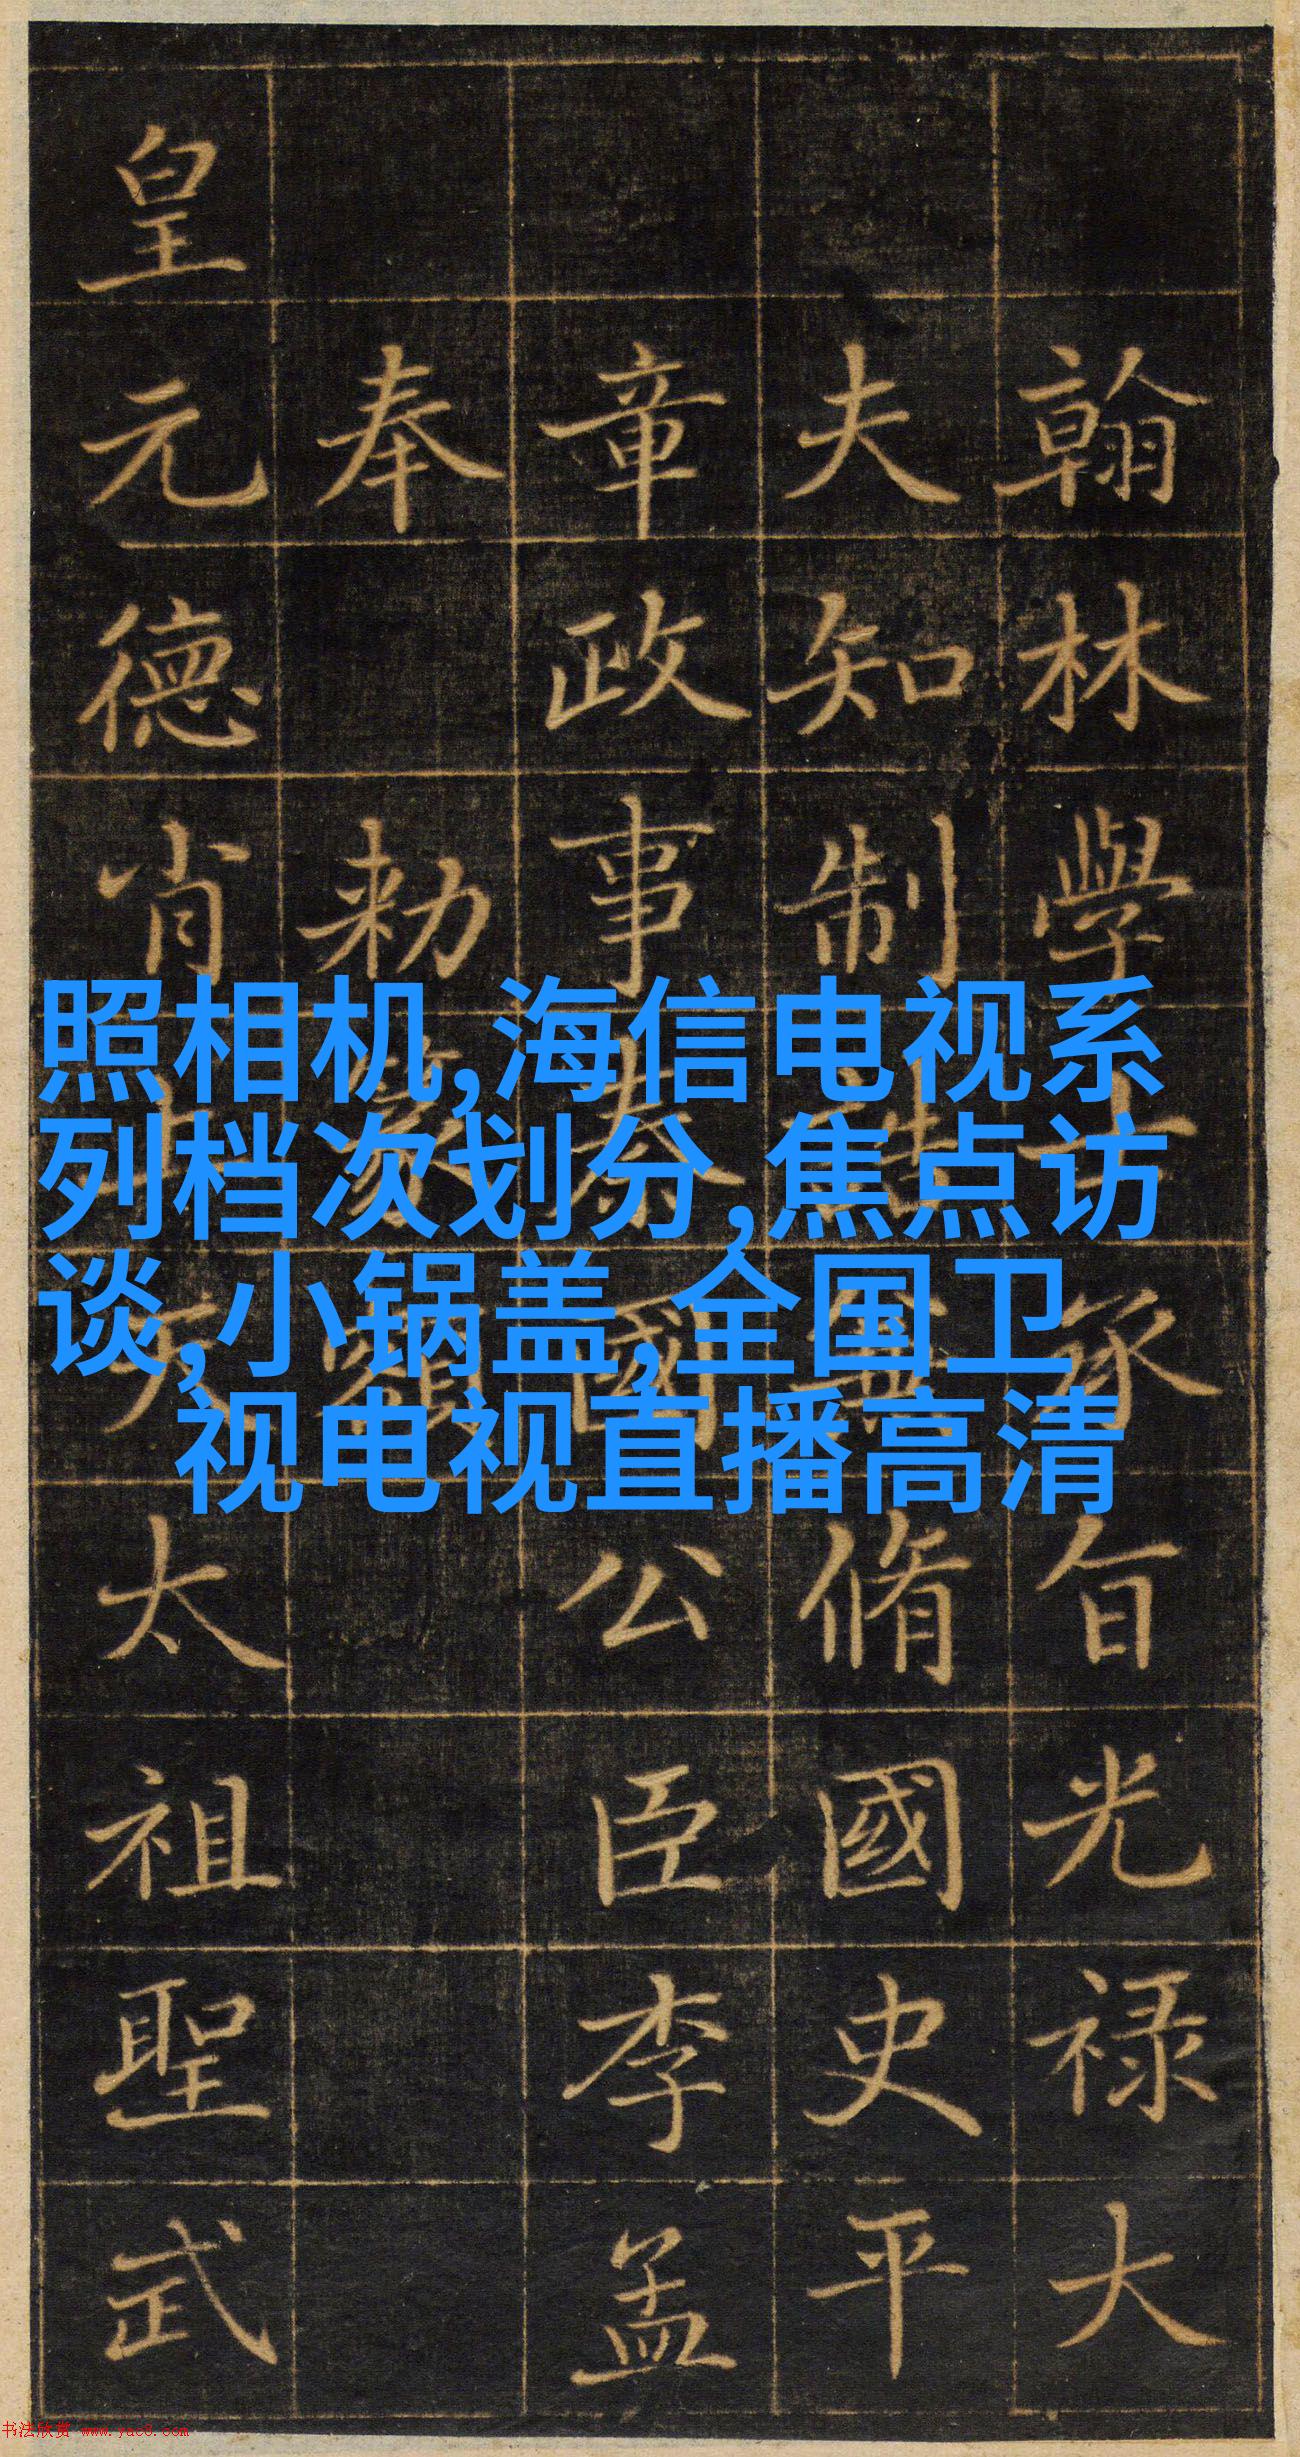 翰林學士承旨光禄大
夫知制脩國史平
章政事秦國公臣李孟
奉勑篆額
皇元德肖太祖聖武
照相机,海信电视系
列档次划分,焦点访
谈,小锅盖,全国卫
视电视直播高清
书法欣赏 www.yac8.com